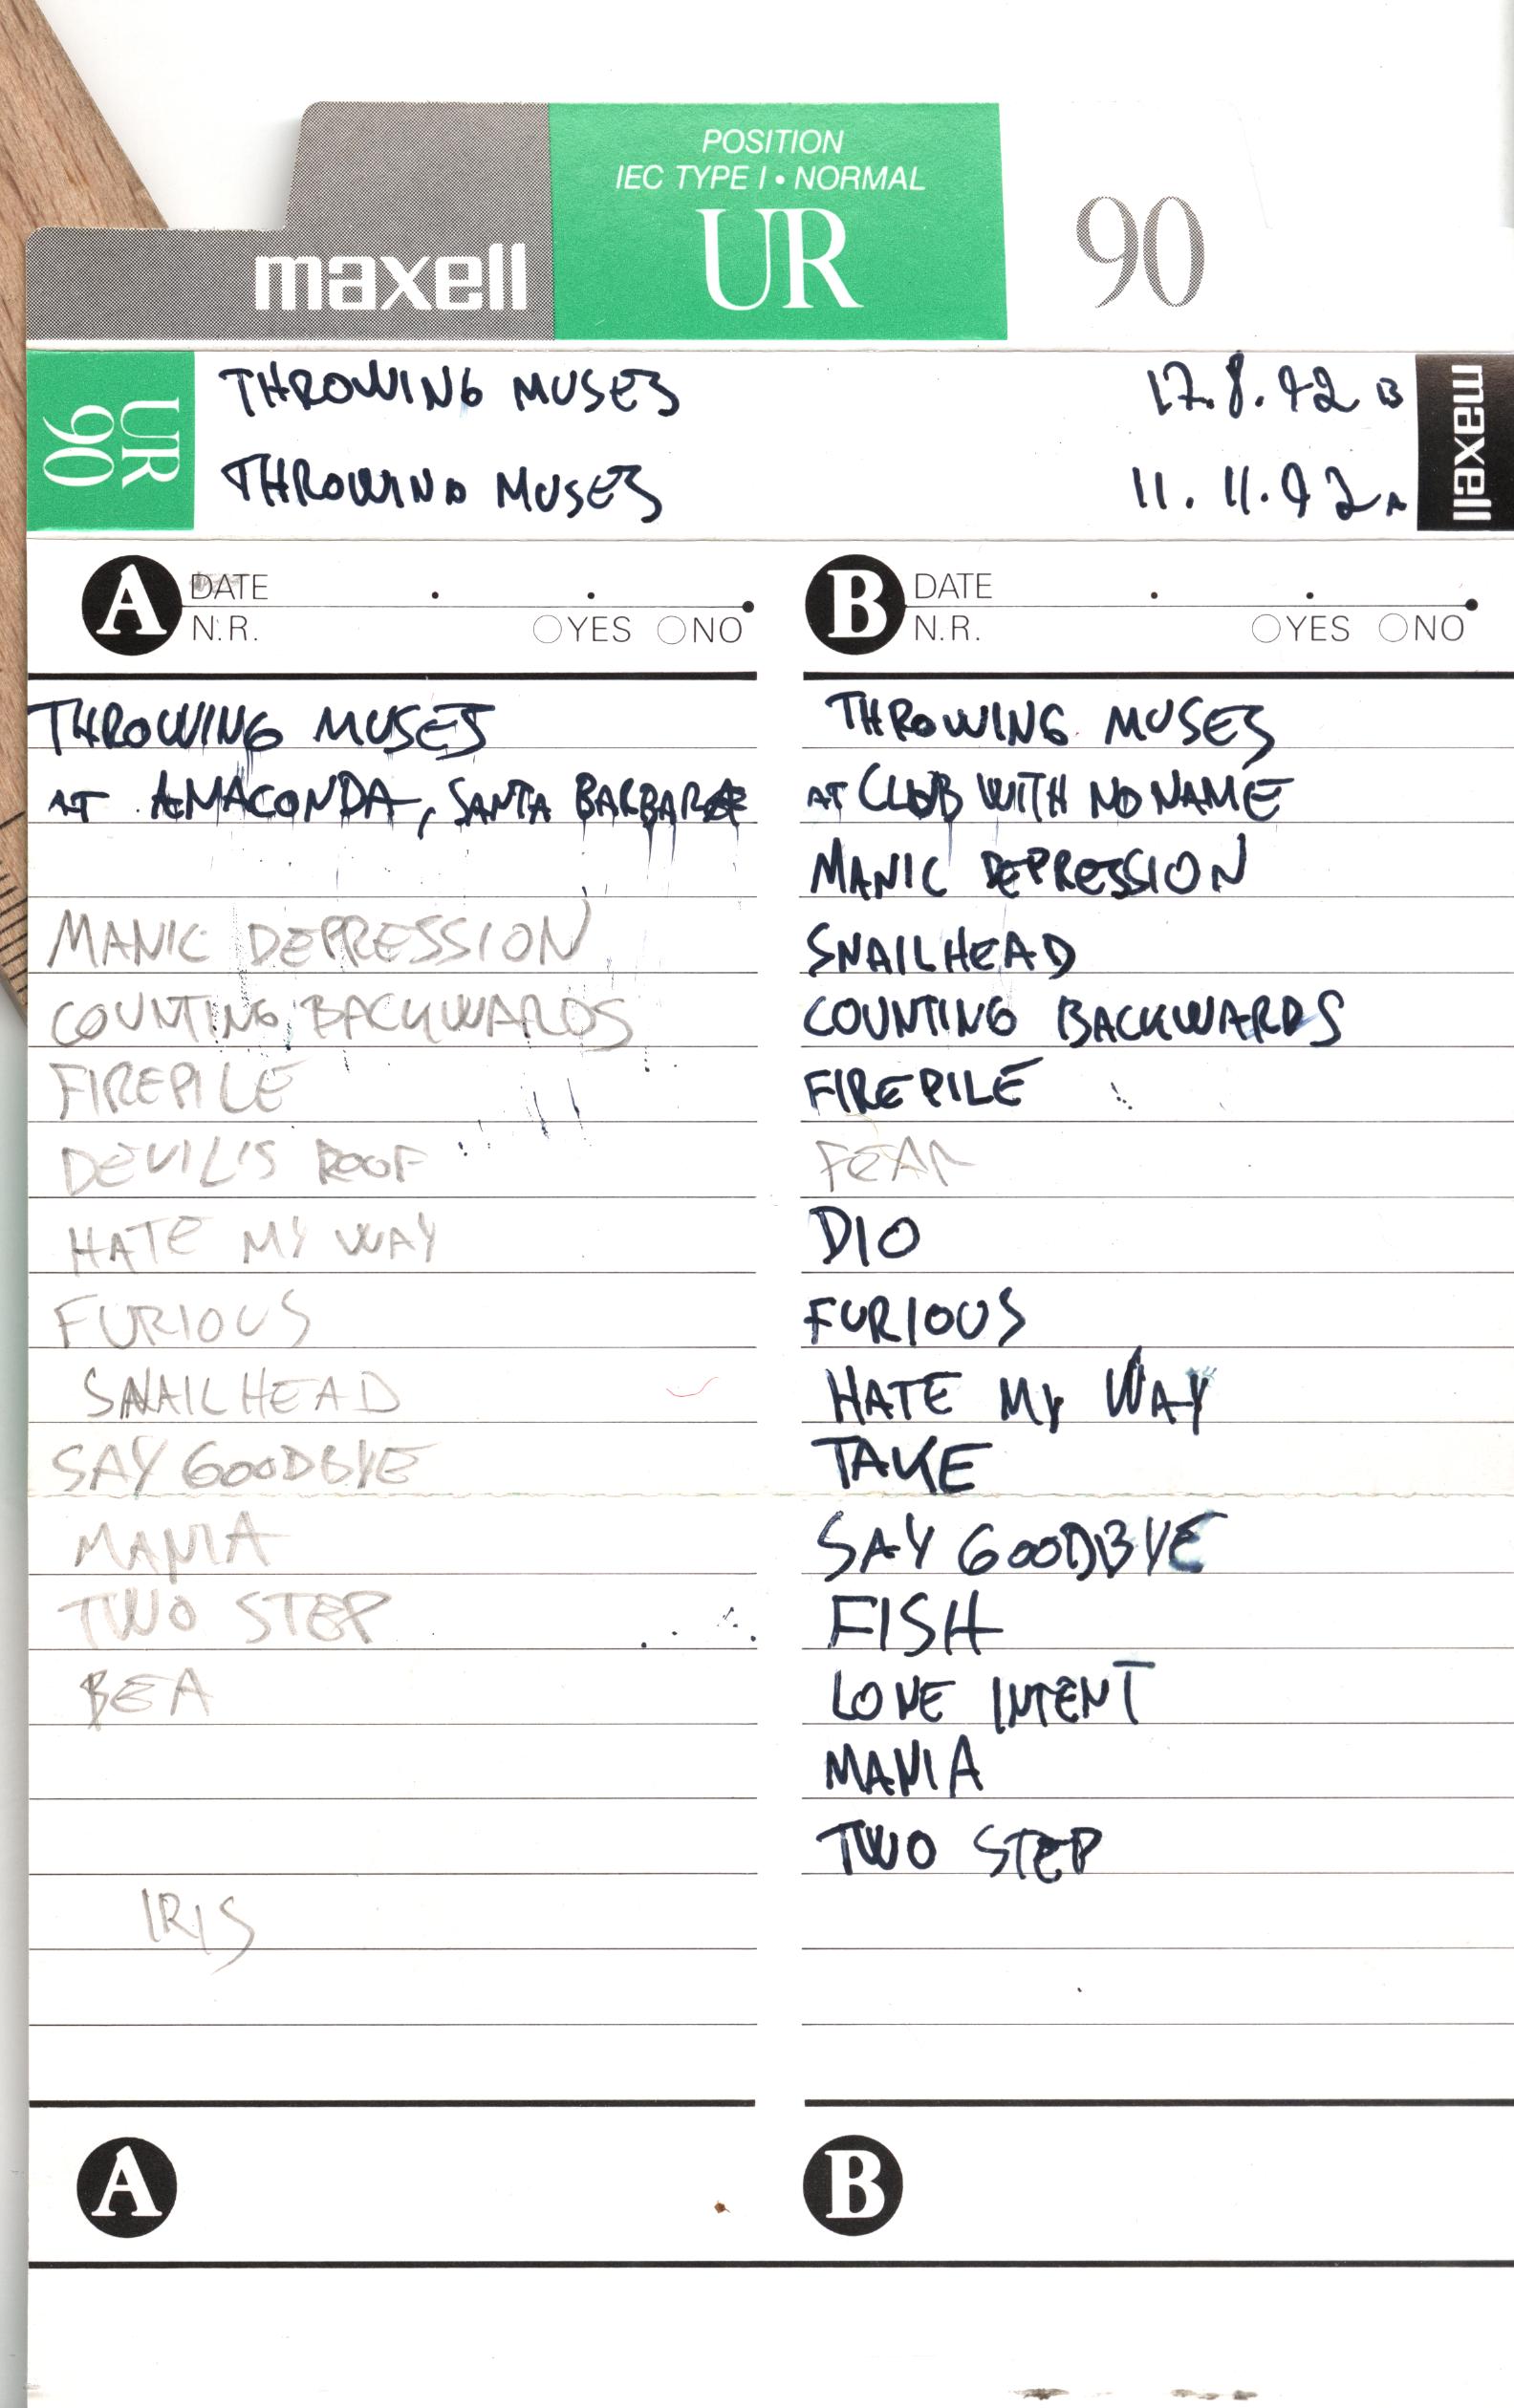 POSITION
IEC TYPE I • NORMAL
maxell UR 90
UR 90
THROWING MUSES 17.8.92 B
maxell
THROWING MUSES 11.11.92 A
A DATE . .
N.R. YES NO
THROWING MUSES
AT AMACONDA, SANTA BARBARA
MANIC DEPRESSION
COUNTING BACKWARDS
FIREPILE
DEVIL'S ROOF
HATE MY WAY
FURIOUS
SNAILHEAD
SAY GOODBYE
MANIA
TWO STEP
BEA
IRIS
A
B DATE . .
N.R. YES NO
THROWING MUSES
AT CLUB WITH NO NAME
MANIC DEPRESSION
SNAILHEAD
COUNTING BACKWARDS
FIREPILE
FEAR
DIO
FURIOUS
HATE MY WAY
TAKE
SAY GOODBYE
FISH
LOVE INTENT
MANIA
TWO STEP
B